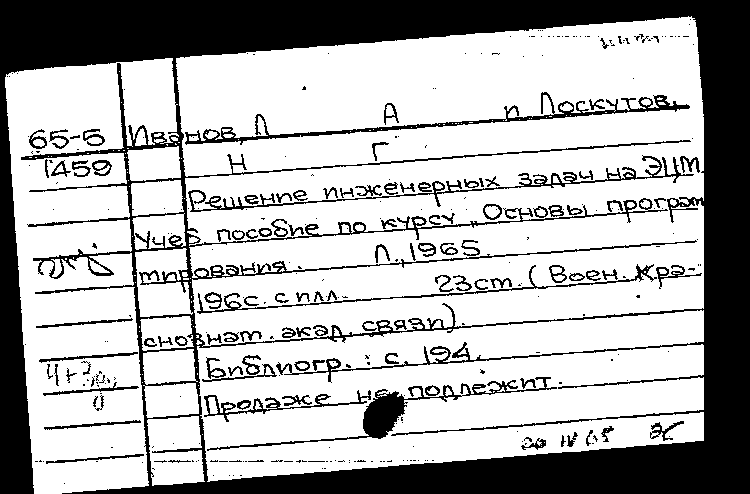 65-5 Иванов, Л А и Лоскутов,
1459 Н Г
Решение инженерных задач на ЭЦМ
Учеб пособие по курсу „Основы програм
мирования. Л., 1965.
196с. с илл. 23см. (Воен. Кра-
снознам. акад. связи).
Библиогр.: с. 194.
Продаже не подлежит.